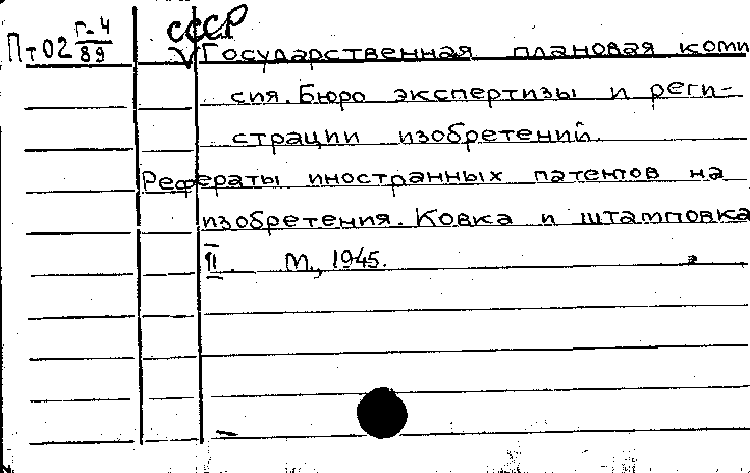 СССР
Пт02 Г-4/89 V Государственная плановая коми
сия. Бюро экспертизы и реги-
страции изобретений.
Рефераты иностранных патентов на
изобретения. Ковка и штамповка
II. М., 1945.